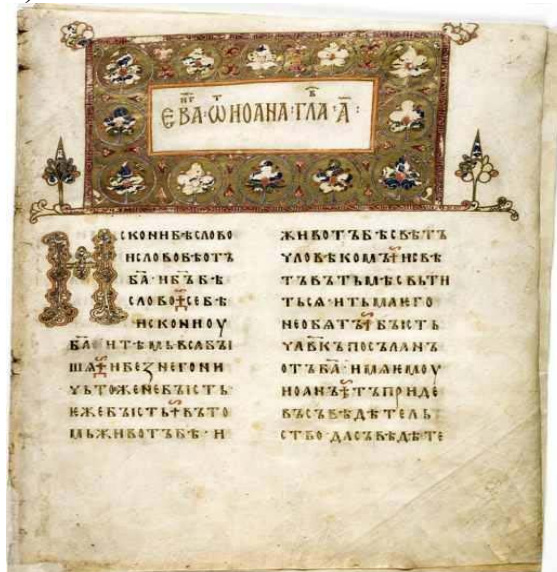 ЕВА҃НГ · Ѡ҃Т ІѠАНА · ГЛА҃В · А҃ :
ИСКОНИ БѢ СЛОВО
И СЛОВО БѢ ОТЪ
БА҃ · И БЪ БѢ
СЛОВО СЕ БѢ
ИСКОНИ ОУ
БА҃ · И ТѢМЬ ВСѦ БЫ
ША · И БЕЗ НЕГО НИ
ЧЬТОЖЕ НЕ БЫСТЬ ·
ЕЖЕ БЫСТЬ ВЪ ТО
МЬ ЖИВОТЪ БѢ · И
ЖИВОТЪ БѢ СВѢТЪ
ЧЛОВѢКОМЪ И СВѢ
ТЪ ВЪ ТЬМѢ СВЬТИ
ТЬСѦ · И ТЬМА ЕГО
НЕ ОБѦТЪ БЫСТЬ
ЧЛ҃ВКЪ ПОСЪЛАНЪ
ОТЪ БА҃ · ИМѦ ЕМОУ
ИОАНЪ ТЪ ПРИДЕ
ВЪ СЪВѢДѢТЕЛЬ
СТВО · ДА СЪВѢДѢТЕ